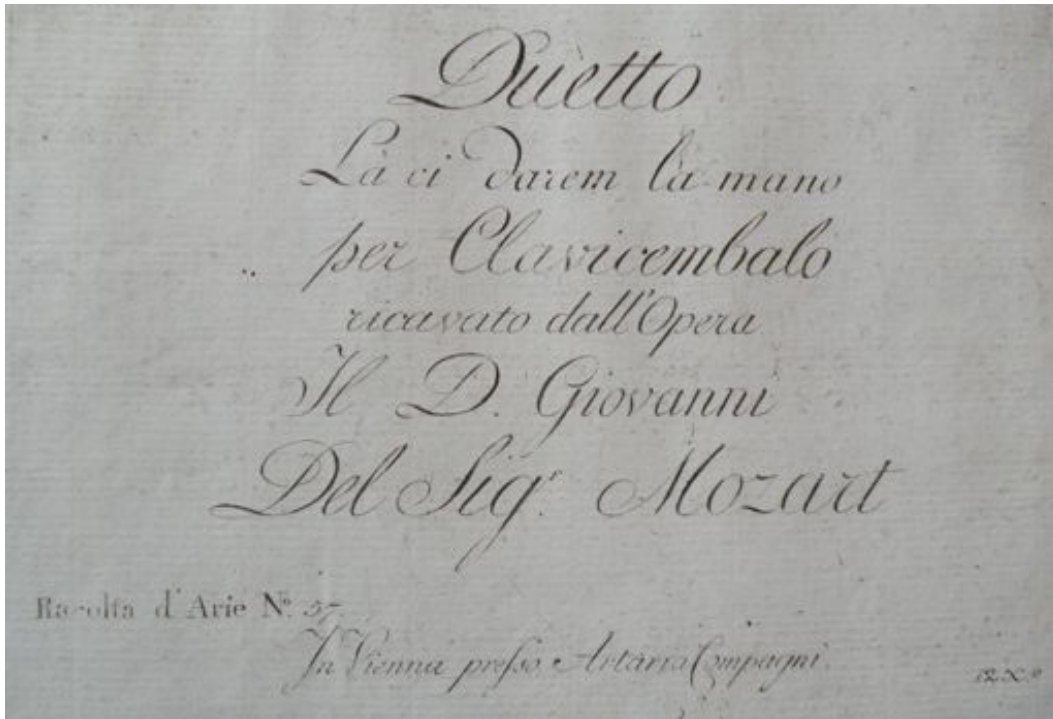 Duetto
Là ci darem la mano
per Clavicembalo
ricavato dall'Opera
Il D. Giovanni
Del Sigr. Mozart
Racolta d'Arie No. 57
In Vienna presso Artaria Compagni